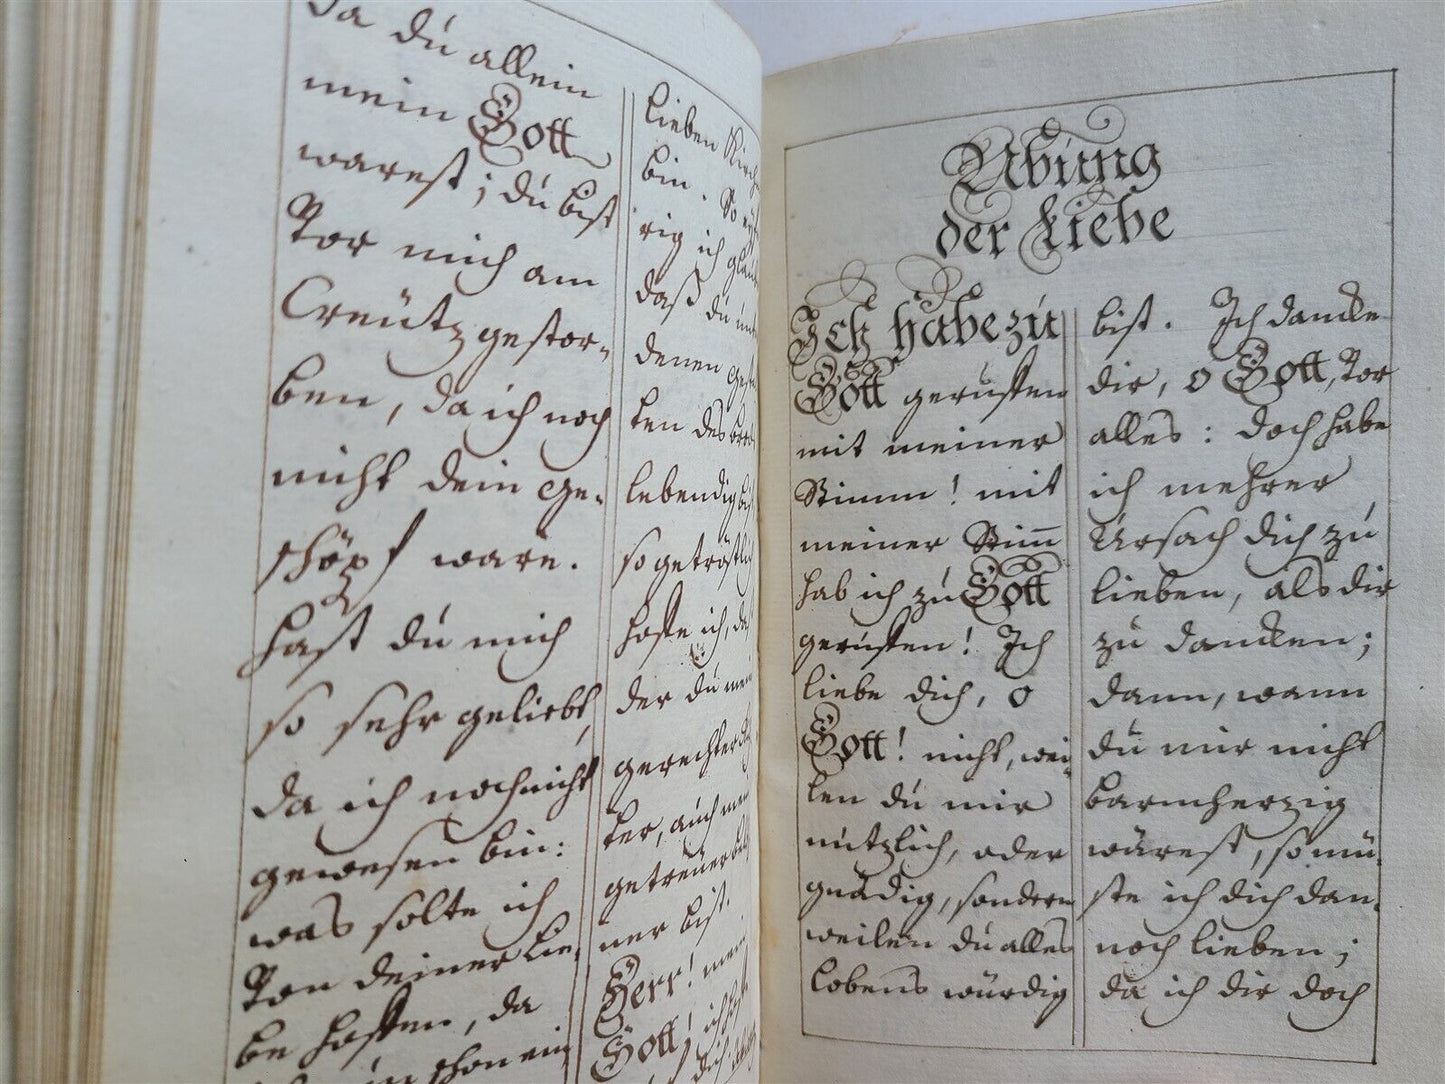 da du allein
mein Gott
warest; du bist
vor mich am
Creütz gestor-
ben, da ich noch
nicht dein ge-
schöpf ware.
hast du mich
so sehr geliebt,
da ich noch nicht
gewesen bin:
was solte ich
von deiner Lie-
be hoffen, da
schon ein
lieben Kirch
bin. So
rig ich
daß du
denen
ten des
lebendig
so getröstlich
hoffe ich,
der du mein
gerechter
ter, auch
getreüer
ner bist.
Herr! mein
Gott! ich
dich
Übung
der Liebe
Ich habe zu
Gott geruffen
mit meiner
Stimm! mit
meiner Stim̄
hab ich zu Gott
geruffen! Ich
liebe dich, o
Gott! nicht, wei-
len du mir
nutzlich, oder
gnädig, sondern
weilen du alles
Lobens würdig
bist. Ich dancke
dir, o Gott, vor
alles: doch habe
ich mehrer
Ursach dich zu
lieben, als dir
zu dancken;
dann, wann
du mir nicht
barmherzig
wärest, so mü-
ste ich dich dan-
noch lieben;
da ich dir doch